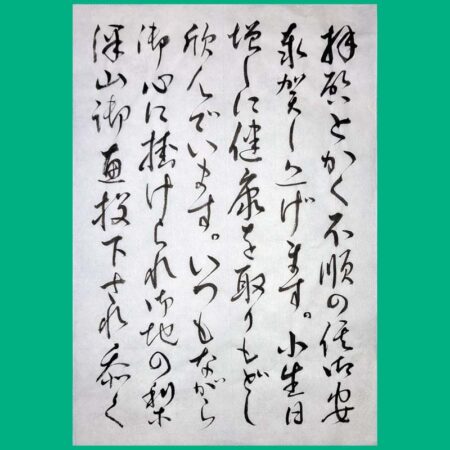 拝啓とかく不順の候御安
泰賀し上げます。小生日
増しに健康を取りもどし
欣んでいます。いつもながら
御心に掛けられ御地の梨
沢山御恵投下され忝く